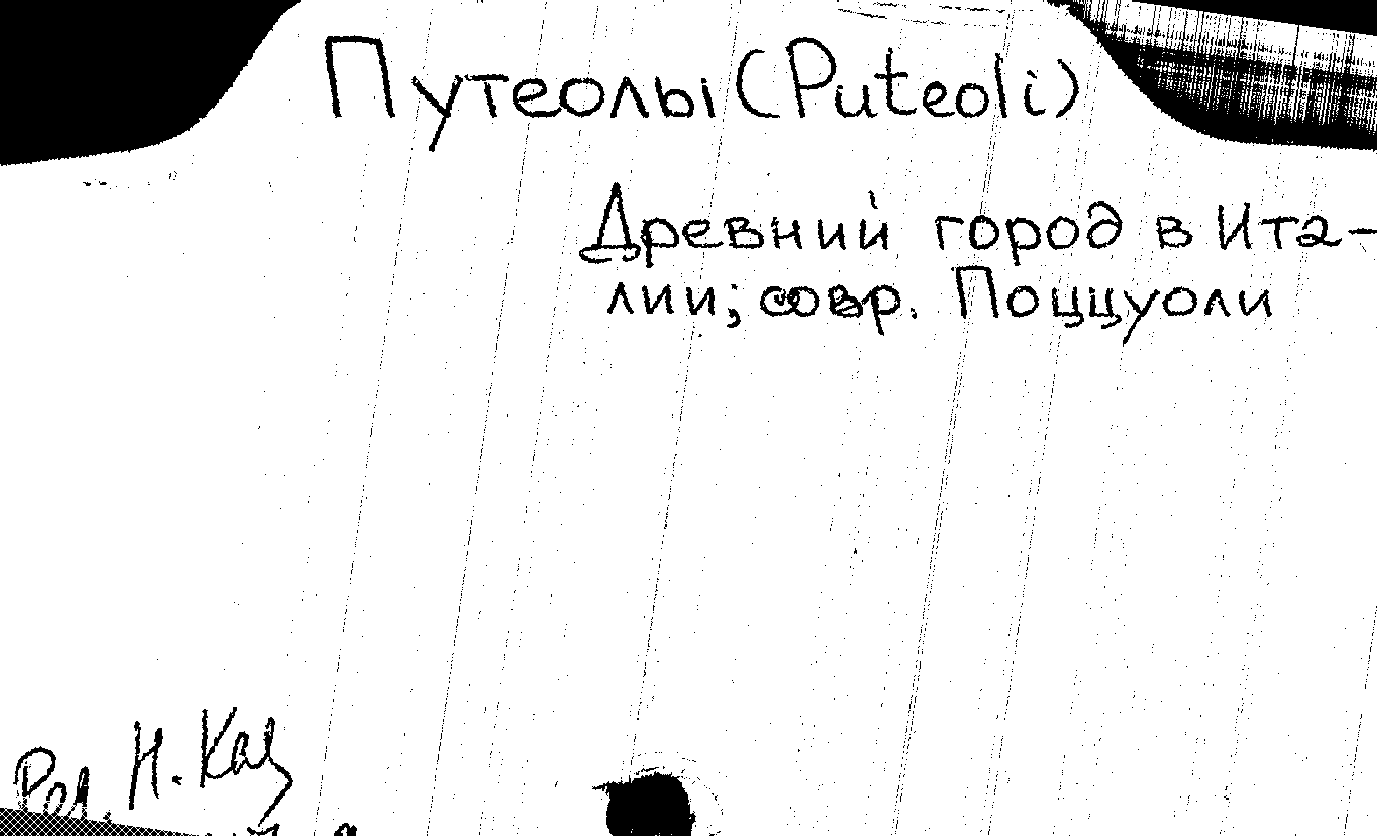 Путеолы (Puteoli)
Древний город в Ита-
лии; совр. Поццуоли
Ред. Н. Кац